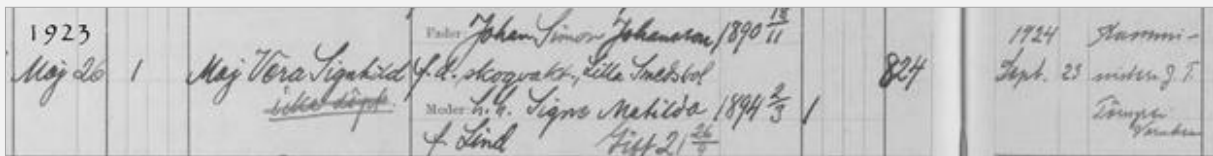 1923
Maj 26 1 Maj Vera Signhild
icke döpt.
Fader: Johan Simon Johansson, 1890 18/11
f.d. skogvakt., Lilla Smedsbol
Moder: h.h. Signe Matilda 1894 2/3 1
f. Lind Gift 21 26/9
824
1924
Sept. 23